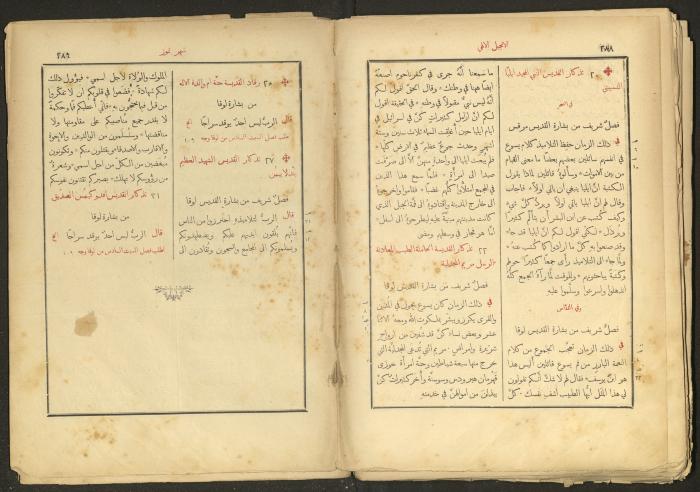 ٣٨٨
الانجيل الاتي
٢٠ تذكار القديس النبي المجيد ايليا
التسبيتي
في السحر
فصل شريف من بشارة القديس مرقس
في ذلك الزمان حفظ التلاميذ كلام يسوع
في انفسهم سائلين بعضهم بعضًا ما معنى القيام
من بين الاموات، وسألوهُ قائلين لماذا يقول
الكتبة انَّ ايليا ينبغي ان يأتي اولًا، فاجاب
وقال لهم انَّ ايليا يأتي اولًا ويردُّ كلَّ شيءٍ
وكيف كُتب عن ابن البشر ان يتألم كثيرًا
ويُرذَل، لكنّي اقول لكم انَّ ايليا قد جاء
وقد صنعوا بهِ كلَّ ما ارادوا كما كُتب عنهُ،
ولمَّا جاء الى التلاميذ رأى جمعًا كثيرًا حولهم
وكتبةً يباحثونهم، وللوقت لمَّا رآهُ الجمع كلُّهُ
اندهلوا واسرعوا وسلَّموا عليهِ
وفي القداس
فصل شريف من بشارة القديس لوقا
في ذلك الزمان تعجَّب الجموع من كلام
النعمة البارز من فم يسوع قائلين أليس هذا
هو ابنُ يوسف، فقال لهم لا شكَّ انَّكم تقولون
لي هذا المثل ايُّها الطبيب اشفِ نفسك، كلُّ
ما سمعنا انَّهُ جرى في كفرناحوم اصنعهُ
ايضًا ههنا في وطنك، وقال الحقَّ اقول لكم
انَّهُ ليس نبيٌّ مقبولًا في وطنهِ، في الحقيقة اقول
لكم انَّ ارامل كثيراتٍ كنَّ في اسرائيل في
ايام ايليا حين أُغلقت السماء ثلاث سنين وستة
اشهرٍ وحدث جوعٌ عظيمٌ في الارض كلّها،
ولم يُبعث ايليا الى واحدةٍ منهنَّ الَّا الى صارفة
صيدا الى امرأةٍ ارملة، فلمَّا سمع هذا الذين
في المجمع امتلأوا كلُّهم غضبًا، فقاموا واخرجوهُ
الى خارج المدينة واقتادوهُ الى قُنَّة الجبل الذي
كانت مدينتهم مبنيَّة عليهِ ليطرحوهُ الى اسفل،
امَّا هو فجاز في وسطهم ومضى
٢٢ تذكار القديسة الحاملة الطيب المعادلة
الرسل مريم المجدلية
فصل شريف من بشارة القديس لوقا
في ذلك الزمان كان يسوع يجول في المدن
والقرى يكرز ويبشّر بملكوت الله ومعهُ الاثنا
عشر وبعض نساءٍ كنَّ قد شُفين من ارواحٍ
شرّيرة وامراضٍ، مريم التي تُدعى المجدليَّة التي
خرج منها سبعة شياطين وحنَّة امرأة خوزى
قهرمان هيرودس وسوسنَّة وأُخر كثيراتٌ كنَّ
يبذلنَ من اموالهنَّ في خدمتهِ
شهر تموز
٣٨٩
٢٥ رقاد القديسة حنة ام والدة الاله
من بشارة لوقا
قال الربُّ ليس احدٌ يوقد سراجًا الخ
٢٧ تذكار القديس الشهيد العظيم
بندلايمن
فصل شريف من بشارة القديس لوقا
قال الربُّ لتلاميذهِ احترزوا من الناس
فانَّهم يلقون ايديهم عليكم ويضطهدونكم
ويسلمونكم الى المجامع والسجون وتُقادون الى
الملوك والولاة لاجل اسمي، فيؤول ذلك
لكم شهادةً، فضعوا في قلوبكم ان لا تفكّروا
من قبل فيما تحتجّون بهِ، فانّي أُعطيكم فمًا وحكمةً
لا يقدر جميع مناصبيكم على مقاومتها ولا
مناقضتها، وستُسلَمون من الوالدين والاخوة
والاقارب والاصدقاء ويقتلون منكم، وتكونون
مُبغَضين من الكلّ من اجل اسمي، وشعرةٌ
من رؤوسكم لا تهلك، بصبركم تقتنون نفوسكم
٣١ تذكار القديس افدوكيمس الصديق
من بشارة لوقا
قال الربُّ ليس احدٌ يوقد سراجًا الخ
اطلب فصل السبت السادس من لوقا وجه ١٠٩